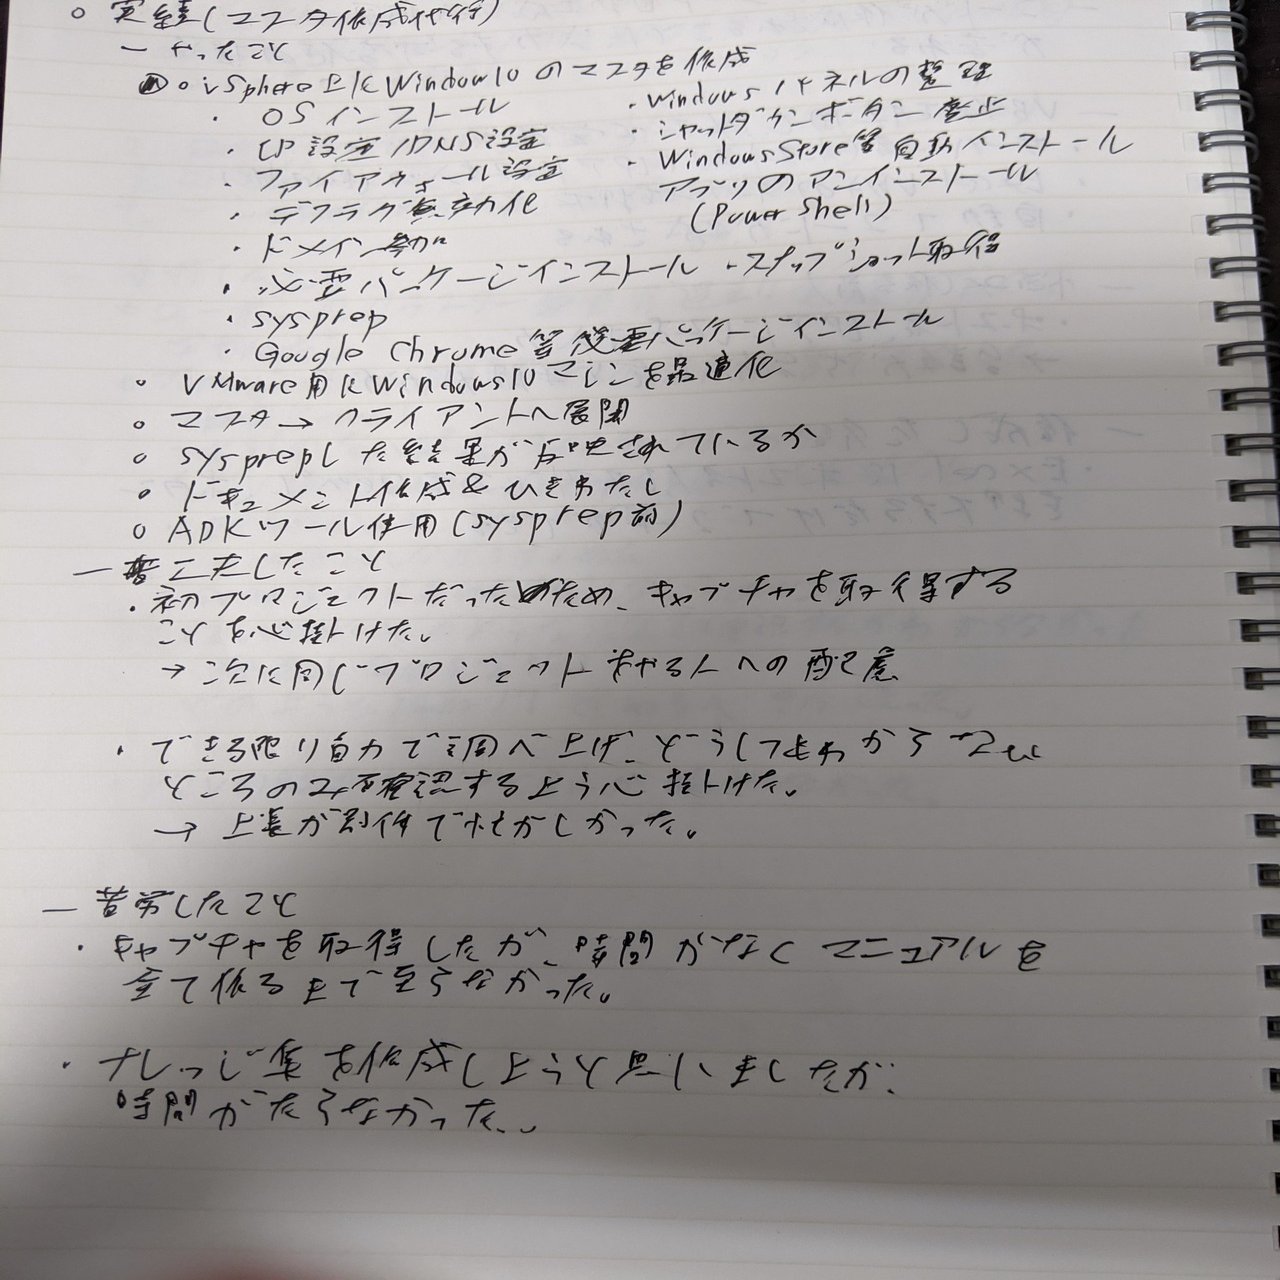 ○ 実績(マスタ作成代行)
ー やったこと
○ vSphere上にWindows10のマスタを作成
・OSインストール
・IP設定/DNS設定
・ファイアウォール設定
・デフラグ無効化
・ドメイン参加
・必要パッケージインストール
・sysprep
・Google Chrome等後必要パッケージインストール
・windowsパネルの整理
・シャットダウンボタン廃止
・WindowsStore等自動インストール
アプリのアンインストール
(PowerShell)
・スナップショット取得
○ VMware用にWindows10マシンを最適化
○ マスタ→クライアントへ展開
○ sysprepした結果が反映されているか
○ ドキュメント作成&ひきわたし
○ ADKツール使用(sysprep前)
ー 工夫したこと
・初プロジェクトだったため、キャプチャを取得する
ことを心掛けた。
→ 次に同じプロジェクトをやる人への配慮
・できる限り自力で調べ上げ、どうしてもわからない
ところのみ確認するよう心掛けた。
→ 上長が別件で忙がしかった。
ー 苦労したこと
・キャプチャを取得したが、時間がなくマニュアルを
全て作るまで至らなかった。
・ナレッジ集を作成しようと思いましたが、
時間がたらなかった。